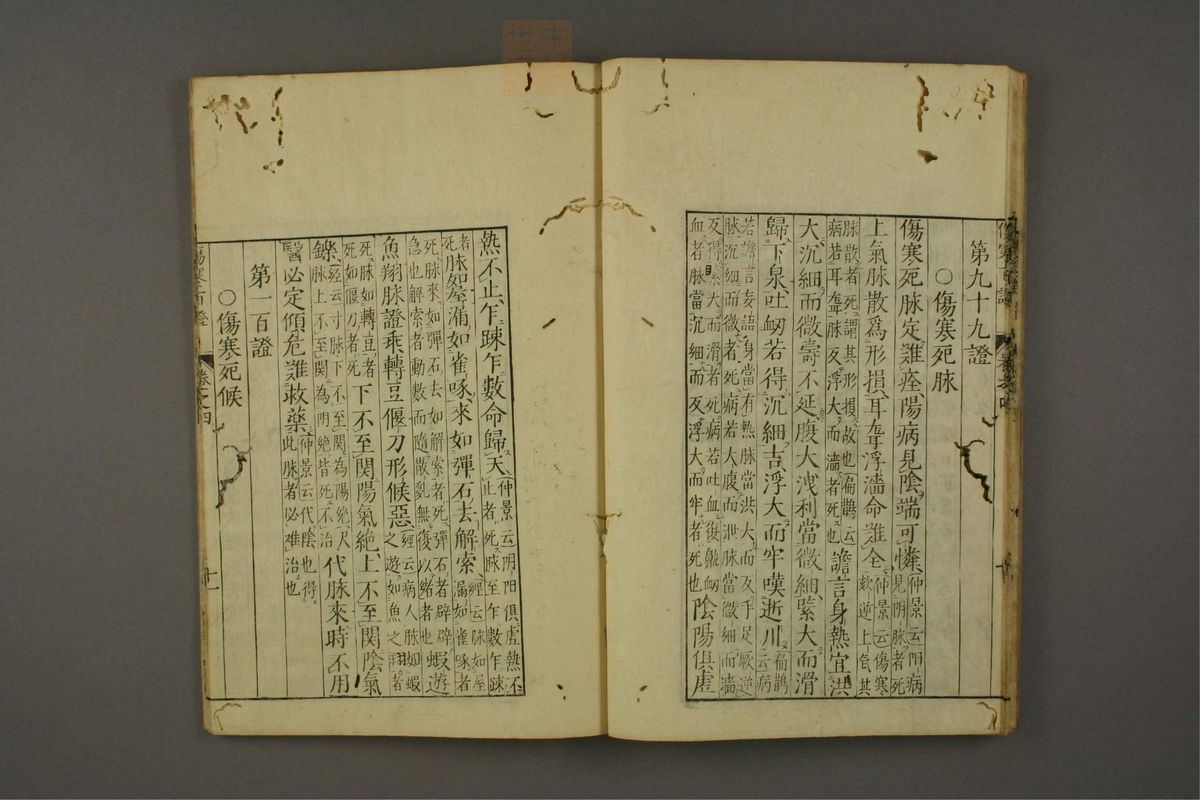 第九十九證
○傷寒死脉
傷寒死脉定誰痊陽病見陰端可憐仲景云陽病見阴脉者死
上氣脉散爲形損耳聾浮濇命誰全仲景云傷寒欬逆上气其
脉散者死謂其形損故也扁鵲云病若耳聾脉反浮大而濇者死也譫言身熱宜洪
大沉細而微壽不延腹大洩利當微細緊大而滑
歸下泉吐衂若得沉細吉浮大而牢嘆逝川扁鵲云病
若譫言妄語身當有熱脉當洪大而反手足厥逆脉沉細而微者死病若大腹而泄脉當微細而濇
反得緊大而滑者死病若吐血復鼽衂血者脉當沉細而反浮大而牢者死也陰陽俱虛
熱不止乍踈乍數命歸天仲景云阴阳俱虛熱不止者死脉至乍數乍踈
者死脉如屋漏如雀啄來如彈石去解索經云脉如屋漏如雀啄者
死脉來如彈石去如解索者死彈石者辟辟急也解索者動數而隨散亂無復以緒者也蝦遊
魚翔脉證乖轉豆偃刀形候惡經云病人脉如蝦之遊如魚之翔者
死脉如轉豆者死如偃刀者死下不至関陽氣絶上不至関陰氣
鑠經云寸脉下不至関為陽絶尺脉上不至関為阴絶皆死不治代脉來時不用
醫必定傾危誰救藥仲景云代陰也得此脉者必难治也
第一百證
○傷寒死候
傷寒百證
卷之四
十一